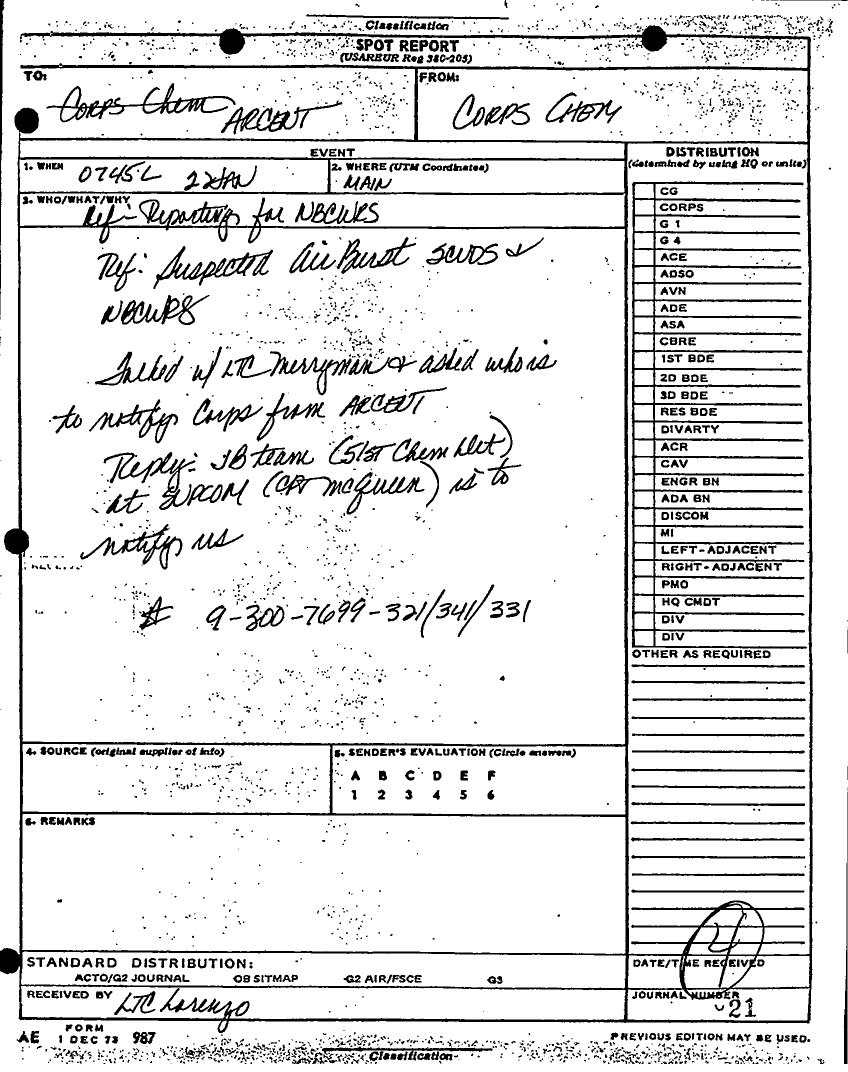 Classification
SPOT REPORT
(USAREUR Reg 380-205)
TO:
Corps Chem ARCENT
FROM:
CORPS CHEM
EVENT
1. WHEN 0745L 22JAN
2. WHERE (UTM Coordinates)
MAIN
3. WHO/WHAT/WHY
Ref - Reporting for NBCWRS
Ref: Suspected Air Burst SCUDS &
NBCWRS
Talked w/ LTC Merryman & asked who is
to notify Corps from ARCENT
Reply: JB team (51st Chem Det)
at SUPCOM (CPT McQueen) is to
notify us
9-300-7699-321/341/331
DISTRIBUTION
(determined by using HQ or units)
CG
CORPS
G 1
G 4
ACE
ADSO
AVN
ADE
ASA
CBRE
1ST BDE
2D BDE
3D BDE
RES BDE
DIVARTY
ACR
CAV
ENGR BN
ADA BN
DISCOM
MI
LEFT-ADJACENT
RIGHT-ADJACENT
PMO
HQ CMDT
DIV
DIV
OTHER AS REQUIRED
4. SOURCE (original supplier of info)
5. SENDER'S EVALUATION (Circle answers)
A B C D E F
1 2 3 4 5 6
6. REMARKS
STANDARD DISTRIBUTION:
ACTO/G2 JOURNAL OB SITMAP G2 AIR/FSCE G3
RECEIVED BY LTC Lorenzo
4
DATE/TIME RECEIVED
JOURNAL NUMBER
21
AE FORM 1 DEC 73 987
PREVIOUS EDITION MAY BE USED.
Classification